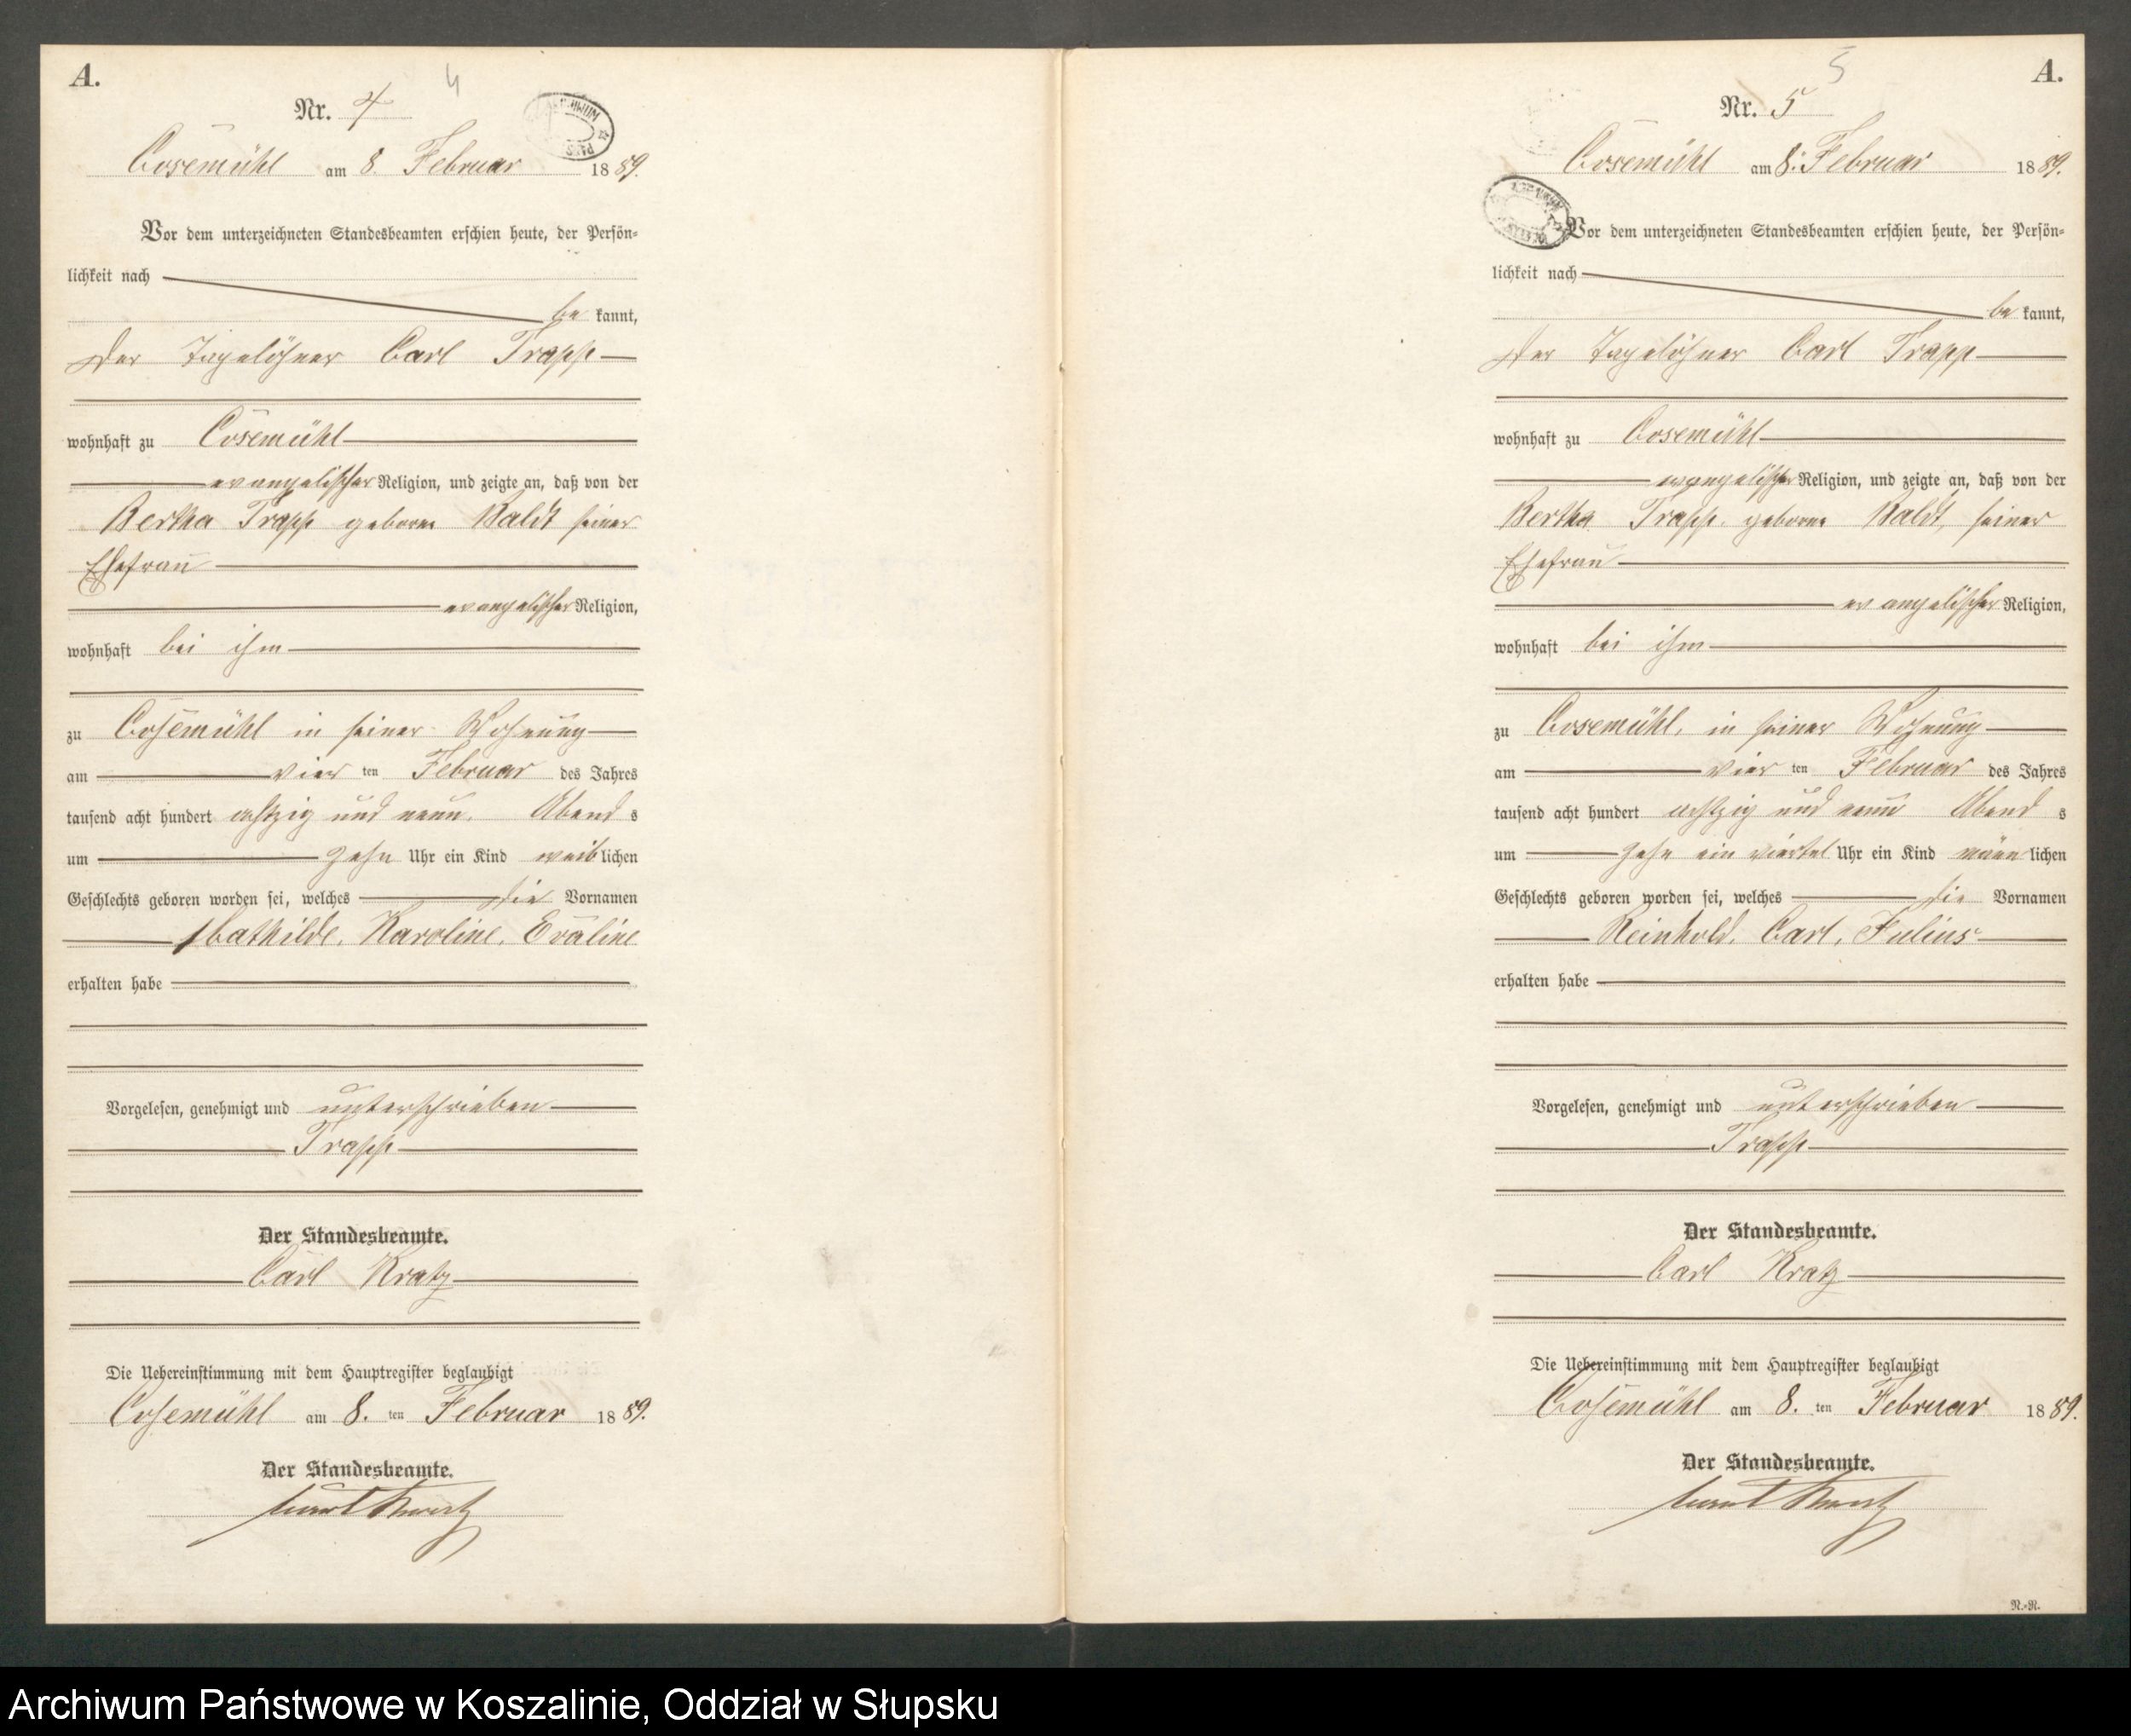 A.
4
Nr. 4
Cosemühl am 8. Februar 1889.
Vor dem unterzeichneten Standesbeamten erschien heute, der Persön-
lichkeit nach
be kannt,
Der Tagelöhner Carl Trapp
wohnhaft zu Cosemühl
evangelischer Religion, und zeigte an, daß von der
Bertha Trapp geborne Baldt seiner
Ehefrau
evangelischer Religion,
wohnhaft bei ihm
zu Cosemühl in seiner Wohnung
am vier ten Februar des Jahres
tausend acht hundert achtzig und neun. Abend s
um zehn Uhr ein Kind weib lichen
Geschlechts geboren worden sei, welches die Vornamen
Mathilde, Karoline, Eváline
erhalten habe
Vorgelesen, genehmigt und unterschrieben
Trapp
Der Standesbeamte.
Carl Kratz
Die Uebereinstimmung mit dem Hauptregister beglaubigt
Cosemühl am 8. ten Februar 1889.
Der Standesbeamte.
Carl Kratz
A.
5
Nr. 5
Cosemühl am 8. Februar 1889.
Vor dem unterzeichneten Standesbeamten erschien heute, der Persön-
lichkeit nach
be kannt,
Der Tagelöhner Carl Trapp
wohnhaft zu Cosemühl
evangelischer Religion, und zeigte an, daß von der
Bertha Trapp, geborne Baldt, seiner
Ehefrau
evangelischer Religion,
wohnhaft bei ihm
zu Cosemühl, in seiner Wohnung
am vier ten Februar des Jahres
tausend acht hundert achtzig und neun Abend s
um zehn ein viertel Uhr ein Kind männ lichen
Geschlechts geboren worden sei, welches die Vornamen
Reinhold, Carl, Julius
erhalten habe
Vorgelesen, genehmigt und unterschrieben
Trapp
Der Standesbeamte.
Carl Kratz
Die Uebereinstimmung mit dem Hauptregister beglaubigt
Cosemühl am 8. ten Februar 1889.
Der Standesbeamte.
Carl Kratz
N.-R.
Archiwum Państwowe w Koszalinie, Oddział w Słupsku